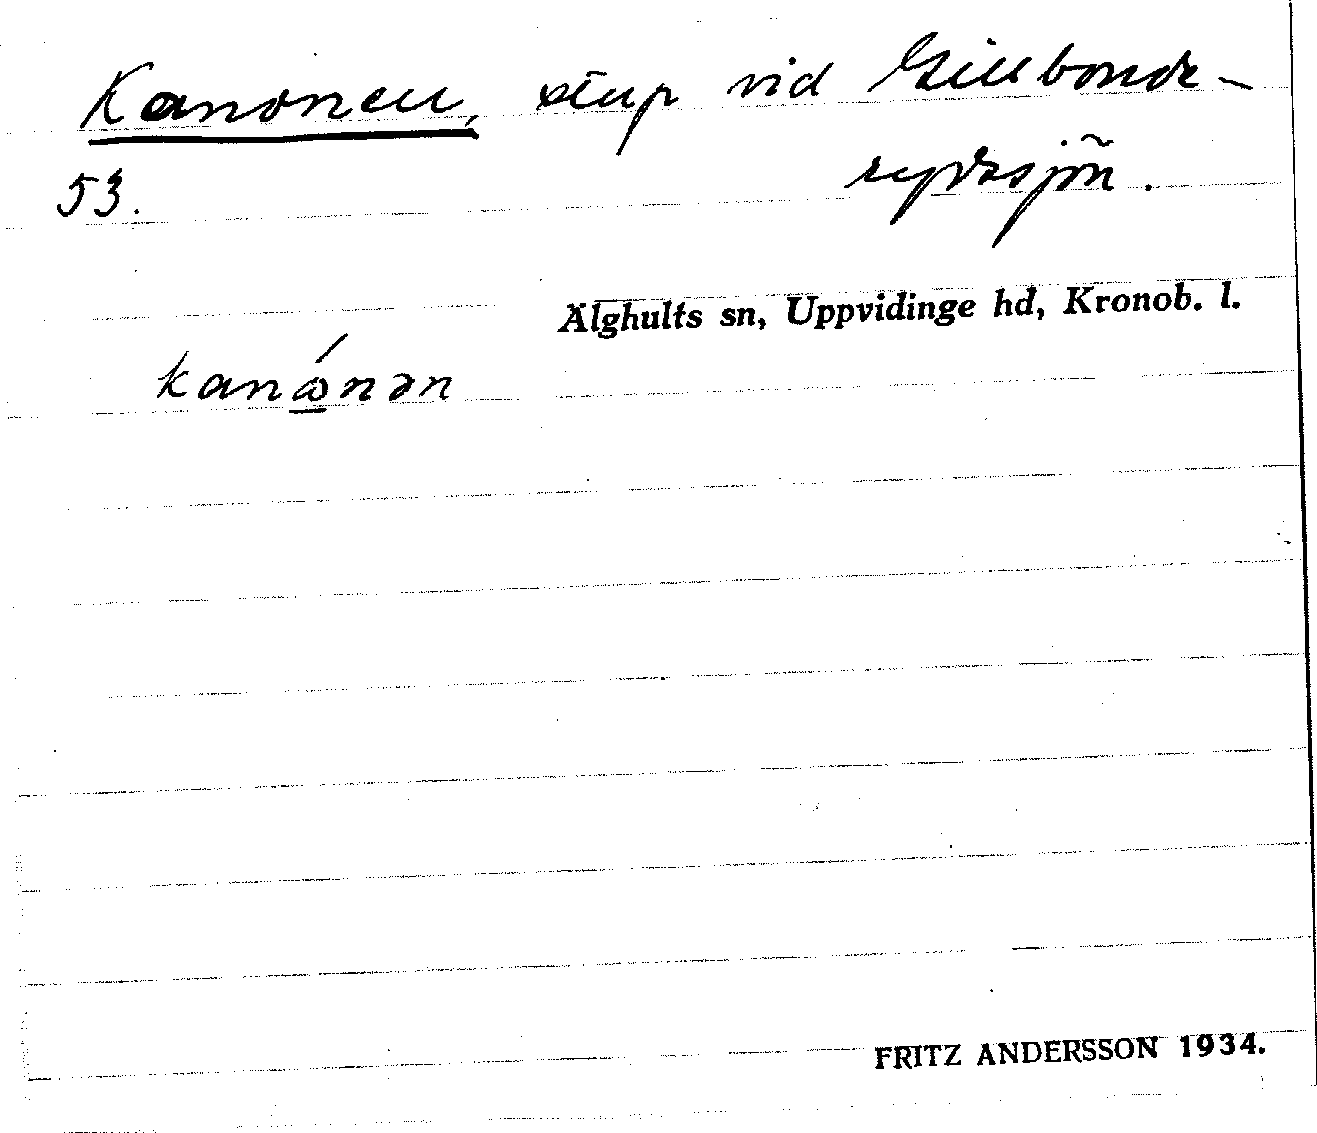 Kanonen, stup vid Gillbonde-
53. rydasjön.
Älghults sn, Uppvidinge hd, Kronob. l.
kanώnən
FRITZ ANDERSSON 1934.